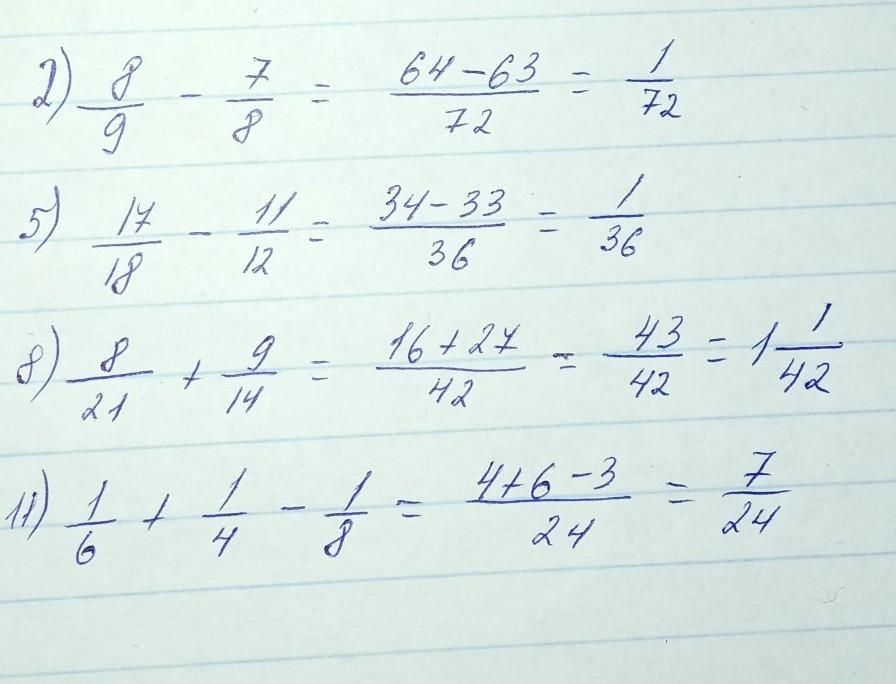 2) 8/9 - 7/8 = (64-63)/72 = 1/72
5) 17/18 - 11/12 = (34-33)/36 = 1/36
8) 8/21 + 9/14 = (16+27)/42 = 43/42 = 1 1/42
11) 1/6 + 1/4 - 1/8 = (4+6-3)/24 = 7/24